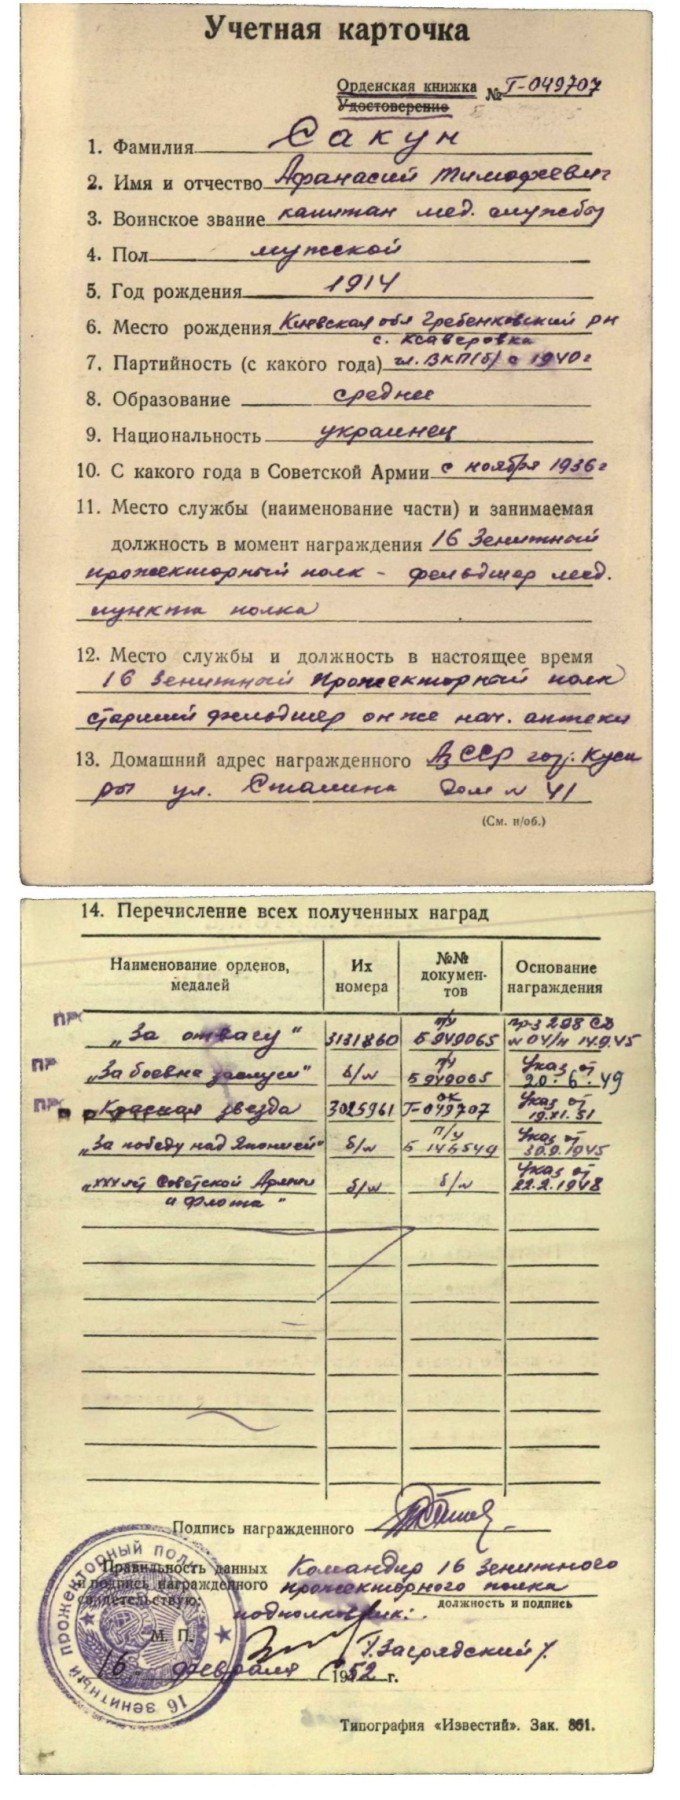 Учетная карточка
Орденская книжка № Т-049707
Удостоверение
1. Фамилия Сакун
2. Имя и отчество Афанасий Тимофеевич
3. Воинское звание капитан мед. службы
4. Пол мужской
5. Год рождения 1914
6. Место рождения Киевская обл Гребенковский рн
с. Ксаверовка
7. Партийность (с какого года) чл. ВКП(б) с 1940 г
8. Образование среднее
9. Национальность украинец
10. С какого года в Советской Армии с ноября 1936 г
11. Место службы (наименование части) и занимаемая
должность в момент награждения 16 Зенитный
прожекторный полк - фельдшер мед.
пункта полка
12. Место службы и должность в настоящее время
16 Зенитный прожекторный полк
старший фельдшер он же нач. аптеки
13. Домашний адрес награжденного АзССР гор. Куса
ры ул. Сталина дом № 41
(См. н/об.)
14. Перечисление всех полученных наград
Наименование орденов, медалей
Их номера
№№ документов
Основание награждения
„За отвагу" 3131860 п/у Б 949065 пр-з 298 СД № 04/н 14.9.45
„За боевые заслуги" б/н п/у Б 949065 Указ от 20.6.49
Красная звезда 3025961 ок Т-049707 Указ от 19.XI.51
„За победу над Японией" б/н п/у Б 146549 Указ от 30.9.1945
„XXX лет Советской Армии б/н б/н Указ от 22.2.1948
и Флота"
Подпись награжденного
Правильность данных Командир 16 Зенитного
и подпись награжденного прожекторного полка
свидетельствую: подполковник:
должность и подпись
М. П. Г. Загрядский
16 февраля 1952 г.
16 зенитный прожекторный полк
Типография «Известий». Зак. 861.